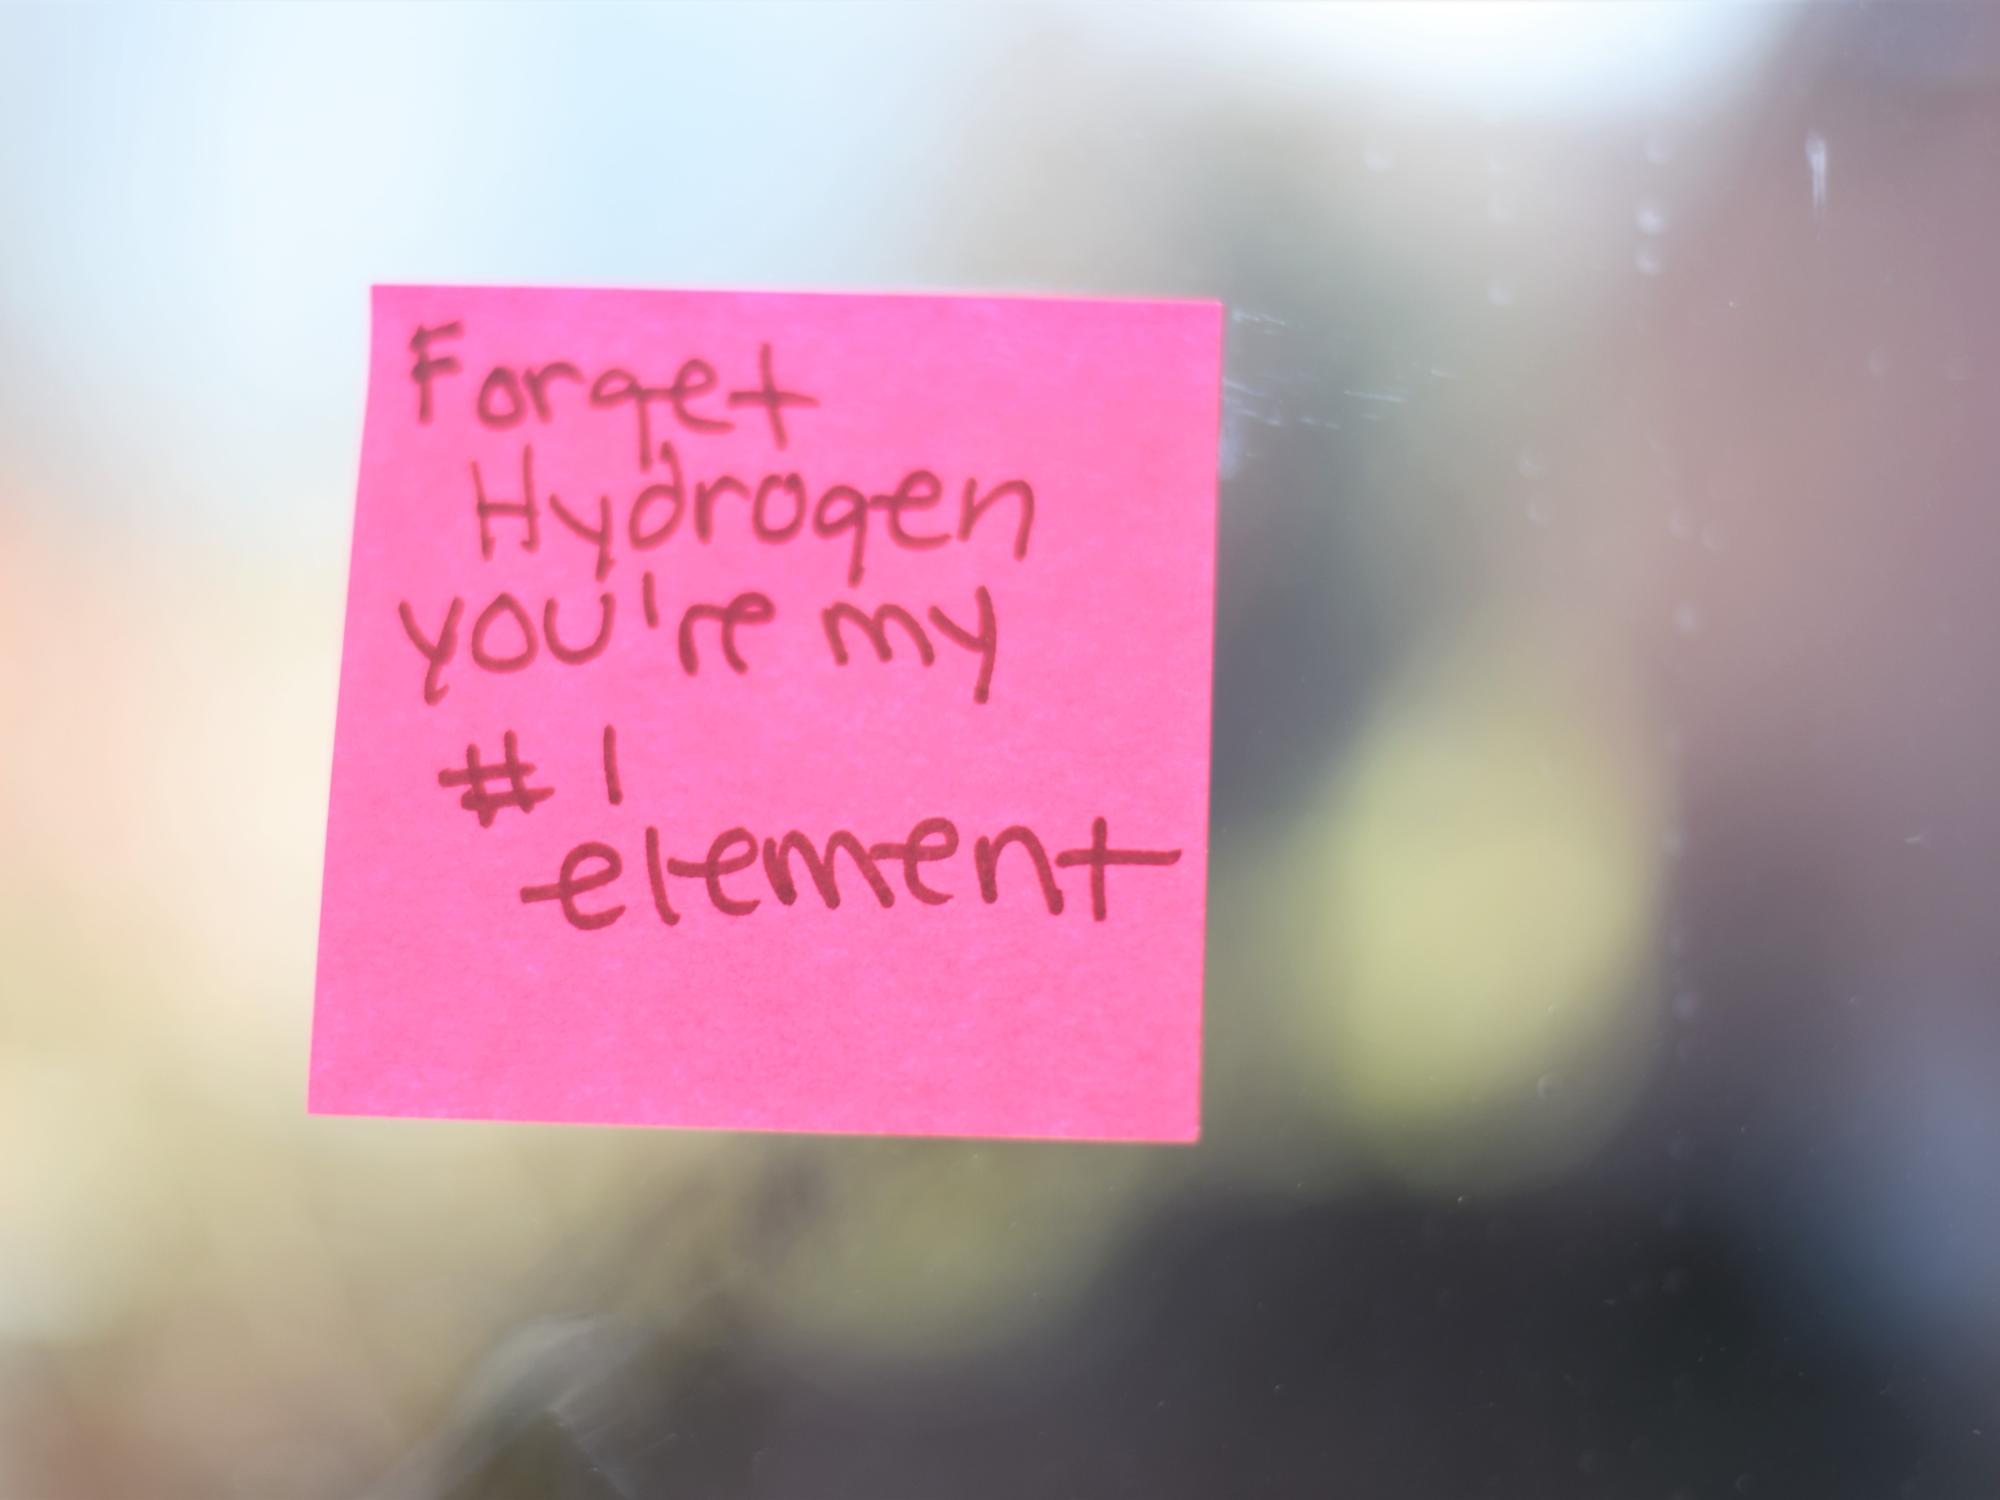 Forget
Hydrogen
you're my
# 1
element